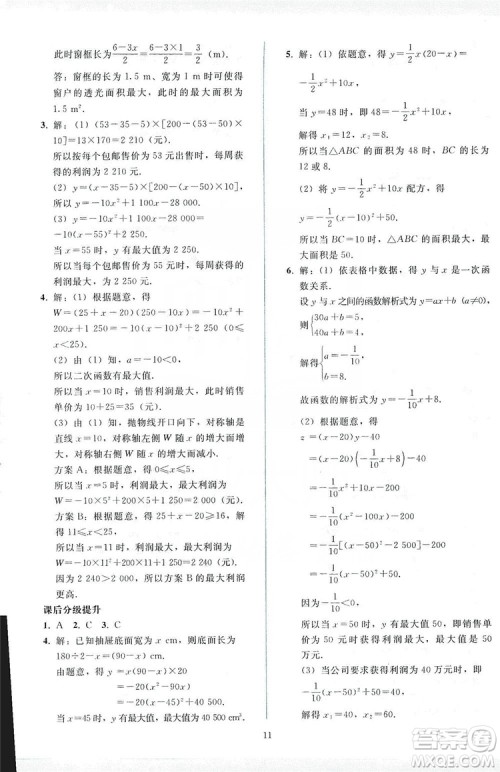 此时窗框长为(6-3x)/2=(6-3×1)/2=3/2(m).
答:窗框的长为1.5 m、宽为1 m时,才能使得
窗户的透光面积最大,最大面积为
1.5 m².
3. 解:(1) (53-35-5)×[200-(53-50)×
10]=13×170=2 210(元).
所以按每个包邮售价为53元出售时,每天获
得的利润为2 210元.
(2) y=(x-35-5)×[200-(x-50)×10],
所以y=-10x²+1 100x-28 000.
(3) y=-10x²+1 100x-28 000=
-10(x-55)²+2 250.
当x=55时,y有最大值为2 250.
所以当每个包邮售价为55元时,利润最大,
为2 250元.
4. 解:(1) 根据题意,得
W=(25+x-20)(250-10x)=-10x²+
200x+1 250=-10(x-10)²+2 250.
(2) 由(1)知,a=-10<0,
所以二次函数有最大值.
所以当x=10时,销售利润最大,此时销售
单价为10+25=35(元).
(3) 由(1)知,抛物线开口向下,对称轴是
直线x=10,对称轴左侧W随x的增大而
增大,对称轴右侧W随x的增大而减小.
方案A:根据题意,得x≤5,
所以当x=5时,利润最大,最大利润为
W=-10×5²+200×5+1 250=2 000(元).
方案B:根据题意,得
所以11≤x≤16,
所以当x=11时,利润最大,最大利润为
W=-10×11²+200×11+1 250=2 240(元).
因为2 240>2 000,所以方案B的最大利润
更高.
课后分级提升
1. A 2. C 3. C
4. 解:已知抽屉底面宽为x cm,则底面长为
180÷2-x=(90-x)(cm).
由题意,得y=x(90-x)×20
=-20(x²-90x)
=-20(x-45)²+40 500.
当x=45时,y有最大值,最大值为40 500 cm³.
5. 解:(1) 依题意,得y=1/2x(20-x)=
-1/2x²+10x(0<x<20).
当y=48时,即-1/2x²+10x=48,
解得x₁=12,x₂=8.
所以当△ABC的面积为48时,BC的长为
12或8.
(2) 将y=-1/2x²+10x配方,得
y=-1/2(x-10)²+50.
所以当BC=10时,△ABC的面积最大,最
大面积是50.
6. 解:(1) 依表格中数据,得y与x是一次函
数关系.
设y与x之间的函数解析式为y=ax+b(a≠0),
则{30a+b=5,
40a+b=4,
解得{a=-1/10,
b=8.
故函数的解析式为y=-1/10x+8.
(2) 根据题意,得
z=(x-20)y-40
=(x-20)(-1/10x+8)-40
=-1/10x²+10x-200
=-1/10[(x-50)²-2 500]-200
=-1/10(x-50)²+50.
因为-1/10<0,
所以当x=50时,z最大值=50.
所以该公司销售这种
销售单价定为50元时,
大,最大值是50万元.
(3) 当公司要求获得利润为
-1/10(x-50)²+50=40,
解得x₁=40,x₂=60.
11